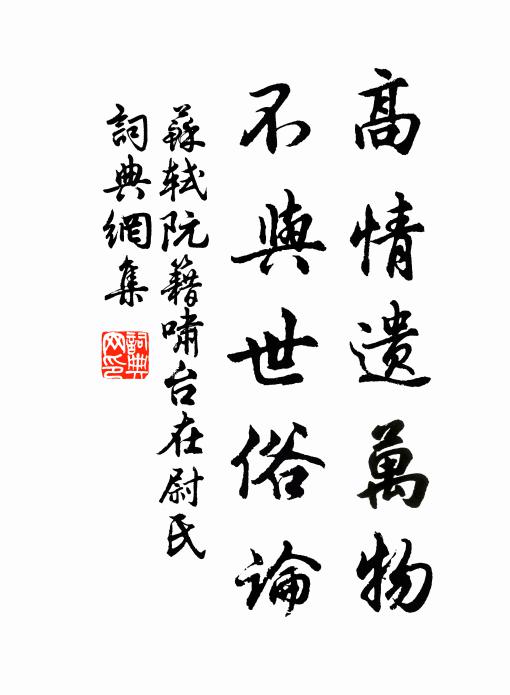 高情遺萬物
不與世俗論
蘇軾阮籍嘯台在尉氏
詞典網集
詞典网印